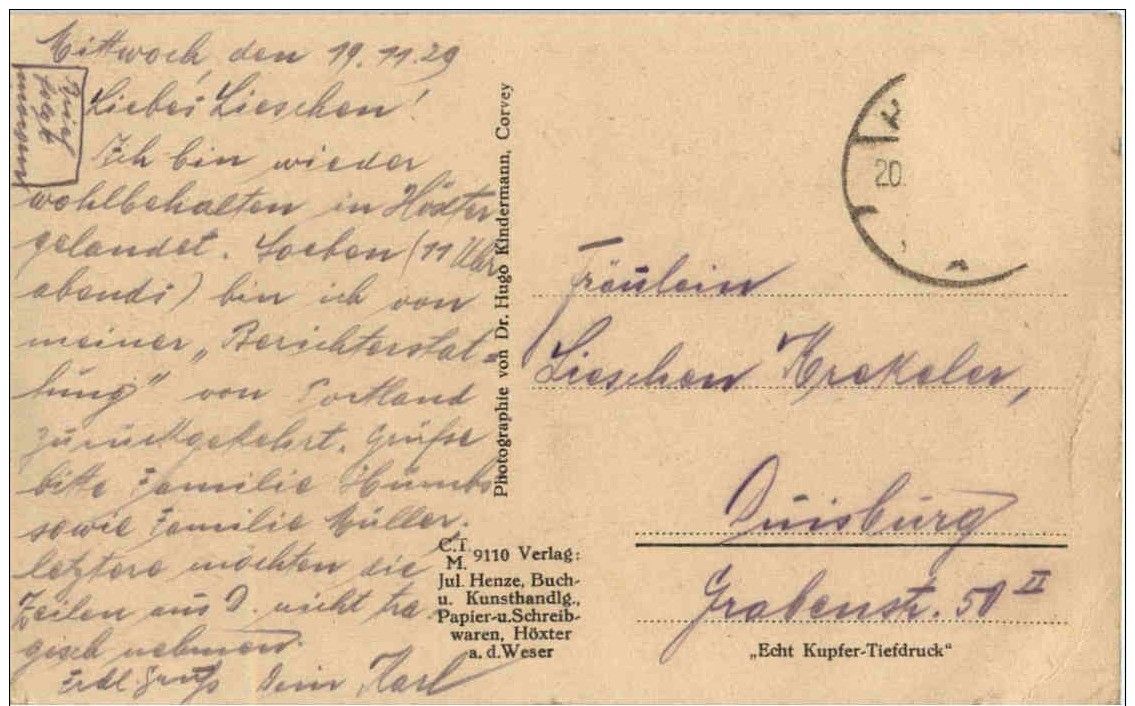 Mittwoch den 19.11.29
Brief
folgt
morgen
Liebes Lieschen!
Ich bin wieder
wohlbehalten in Höxter
gelandet. Soeben (11 Uhr
abends) bin ich von
meiner „Berichterstat-
tung" von Portland
zurückgekehrt. Grüße
bitte Familie
sowie Familie Müller.
letztere möchten die
Zeilen aus D. nicht tra-
gisch nehmen.
Gruß Dein Karl
Photographie von Dr. Hugo Kindermann, Corvey
C.T.
M. 9110 Verlag:
Jul. Henze, Buch-
u. Kunsthandlg.,
Papier-u.Schreib-
waren, Höxter
a.d.Weser
20.
Fräulein
Lieschen Krekeler,
Duisburg
Grabenstr. 50 II
„Echt Kupfer-Tiefdruck"